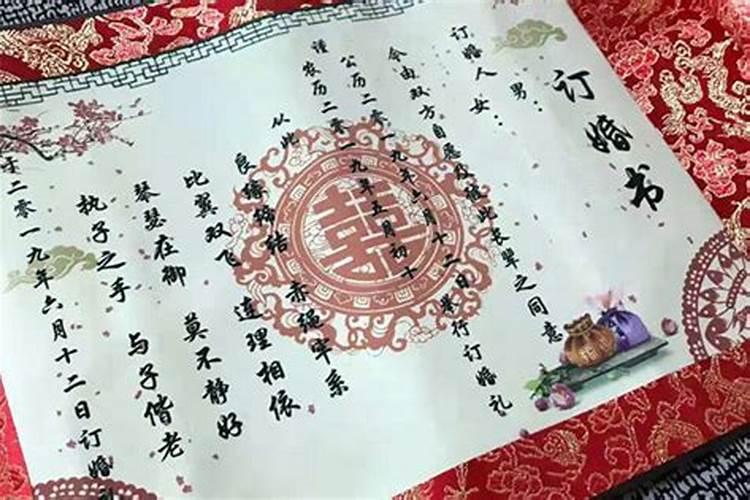 订婚书
订婚人 男：
女：
今由双方自愿及彼此长辈之同意
公历二零一九年六月十二日举行订婚礼
谨农历二零一九年五月初十
从此 赤绳牢系
良缘缔结 连理相依
比翼双飞 莫不静好
琴瑟在御 与子偕老
执子之手
于二零一九年六月十二日订婚